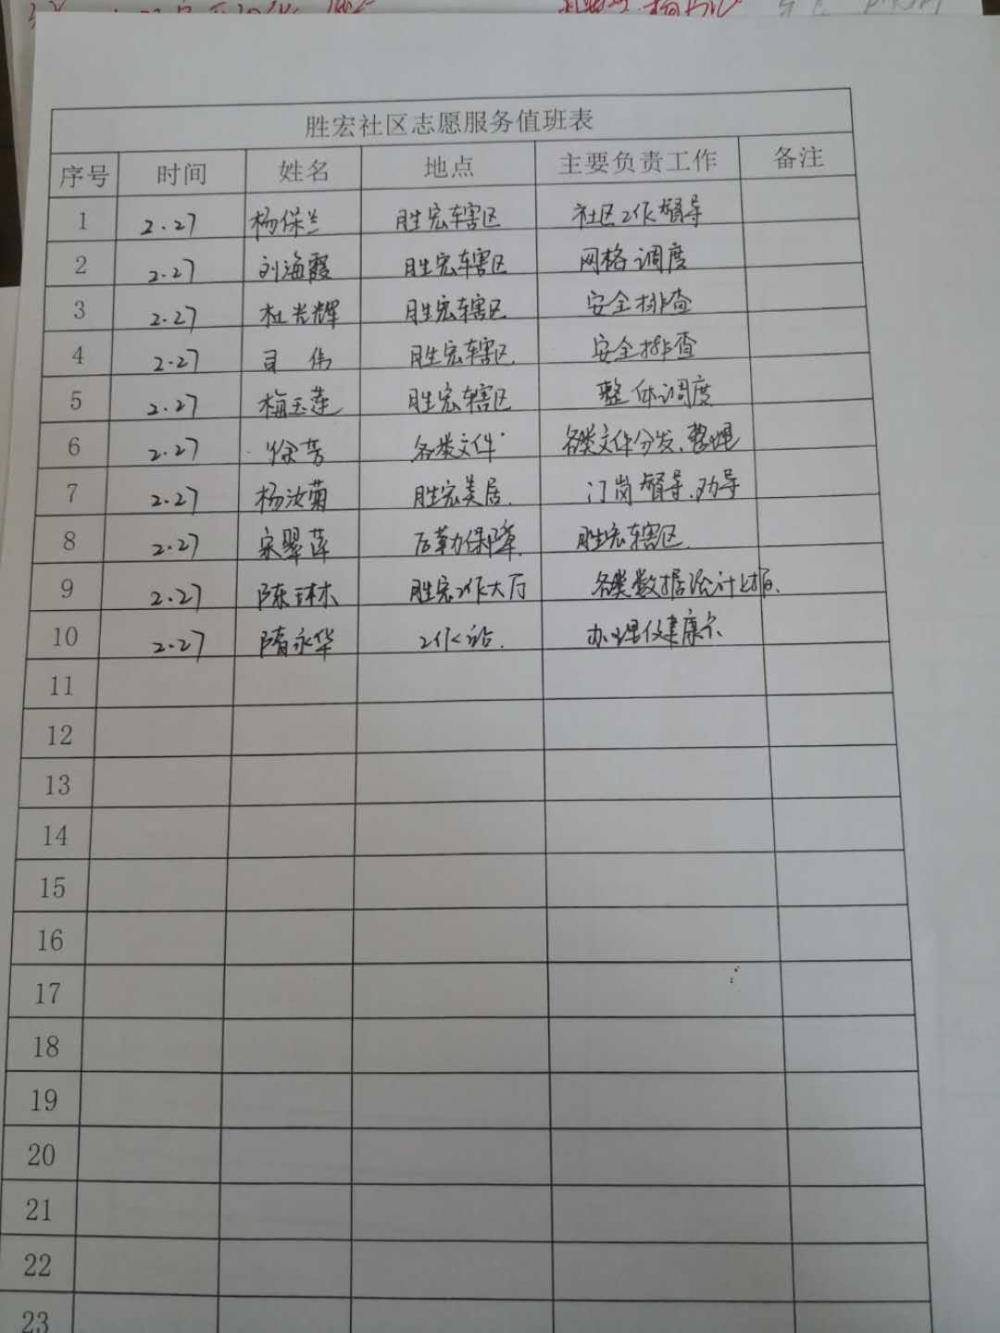 胜宏社区志愿服务值班表
序号 时间 姓名 地点 主要负责工作 备注
1 2.27 杨保兰 胜宏辖区 社区工作督导
2 2.27 刘海霞 胜宏辖区 网格调度
3 2.27 杜光辉 胜宏辖区 安全排查
4 2.27 司伟 胜宏辖区 安全排查
5 2.27 梅玉莲 胜宏辖区 整体调度
6 2.27 徐芳 各类文件 各类文件分发、整理
7 2.27 杨汝菊 胜宏美居 门岗督导、劝导
8 2.27 宋翠萍 后勤保障 胜宏辖区
9 2.27 陈琳 胜宏工作大厅 各类数据统计上报
10 2.27 隋永华 工作站 办理健康卡
11
12
13
14
15
16
17
18
19
20
21
22
23